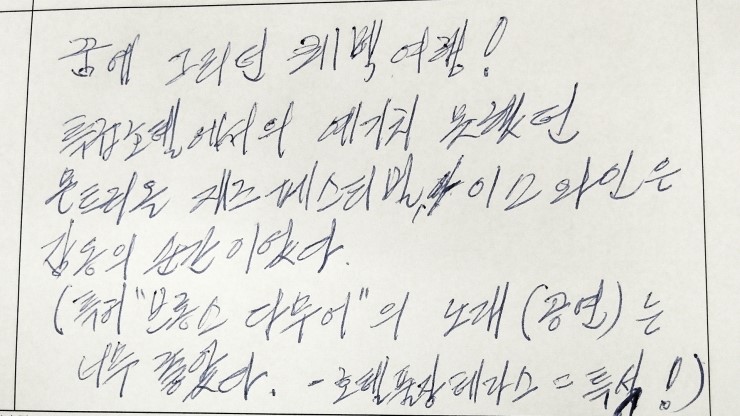 꿈에 그리던 퀘벡여행!
특급호텔에서의 예기치 못했던
몬트리올 재즈페스티벌, 와인은
감동의 순간이었다.
(특히 "브롱스 다무어"의 노래(공연)는
너무 좋았다. - 호텔 테라스 = 특석!)